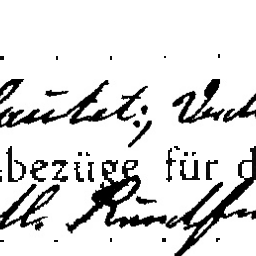 lautet:, Ver
bezüge für d
ll. Rundfu